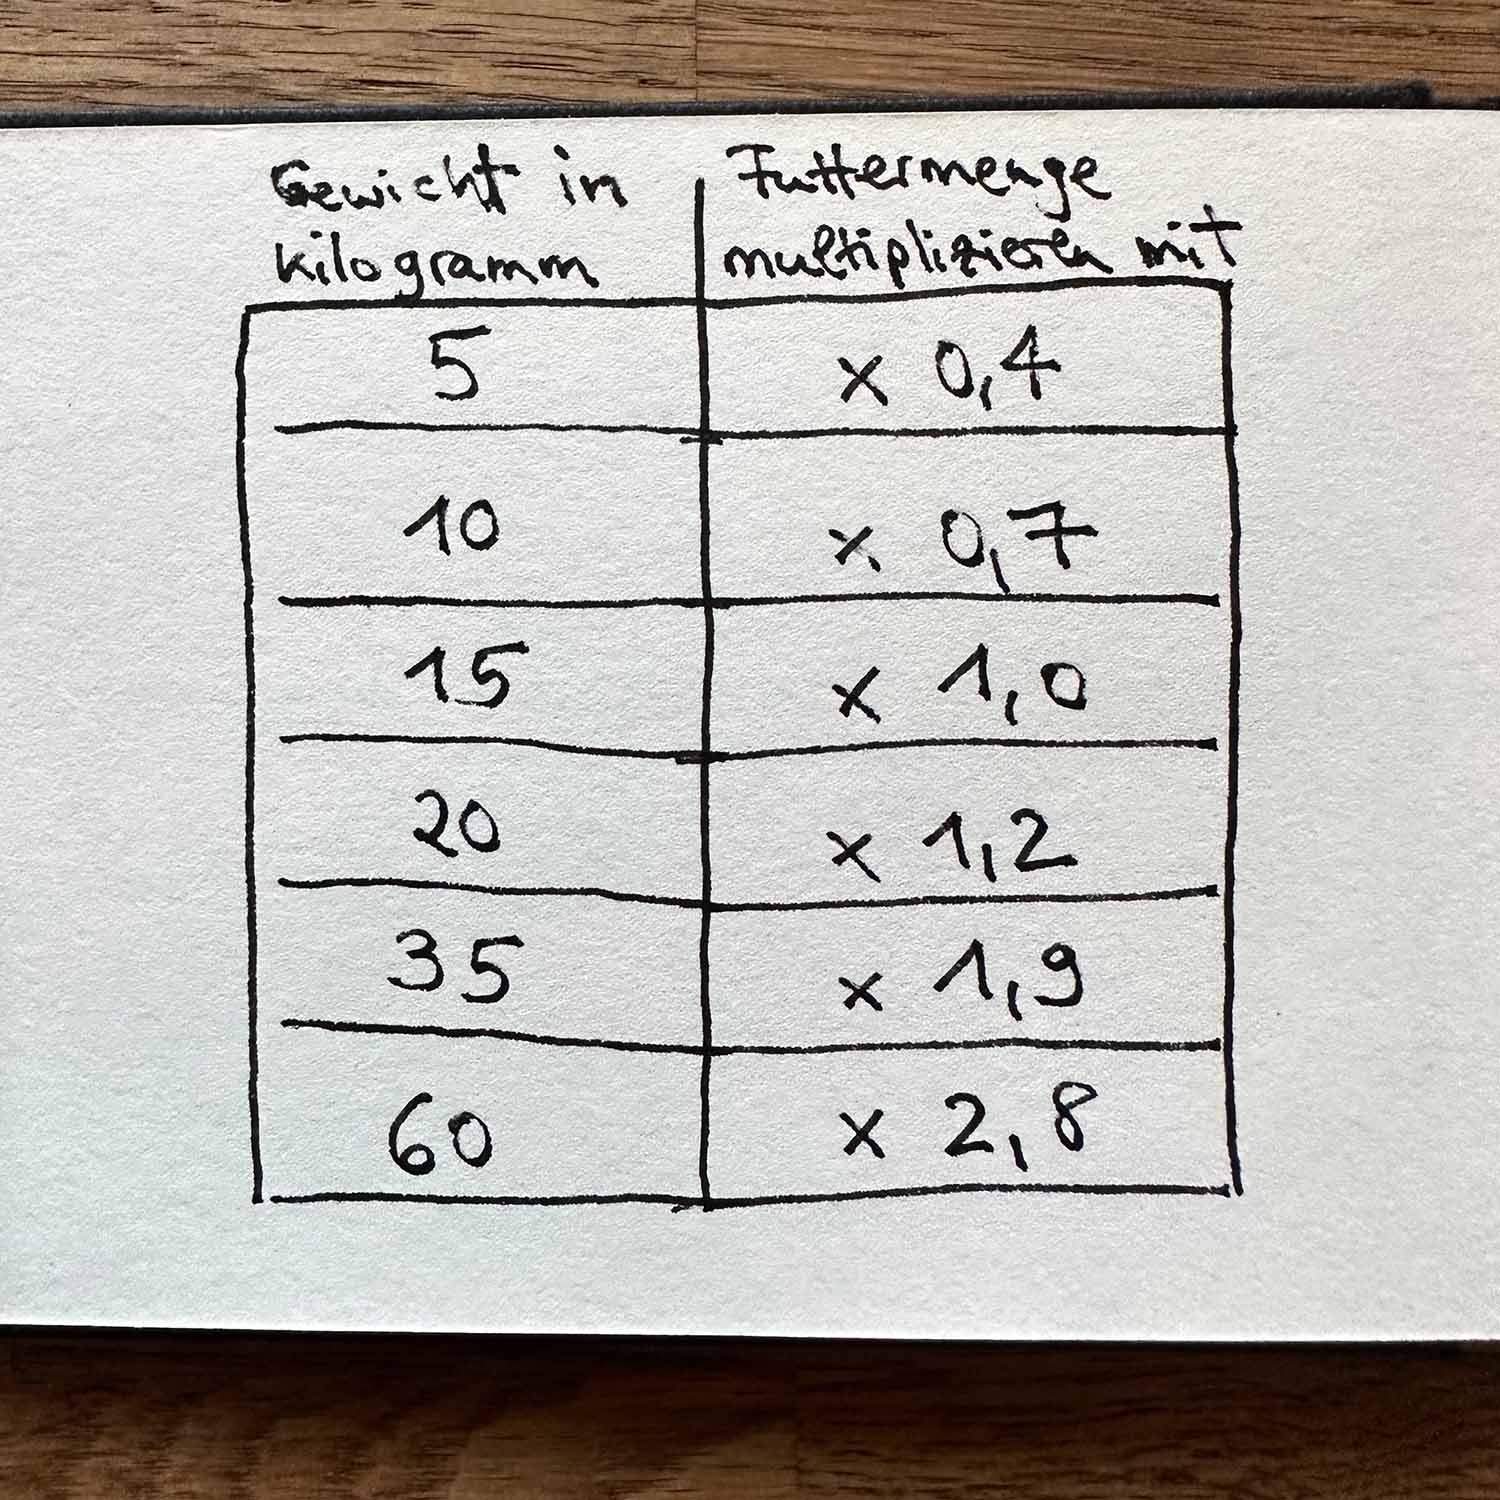 Gewicht in
kilogramm
Futtermenge
multiplizieren mit
5 x 0,4
10 x 0,7
15 x 1,0
20 x 1,2
35 x 1,9
60 x 2,8